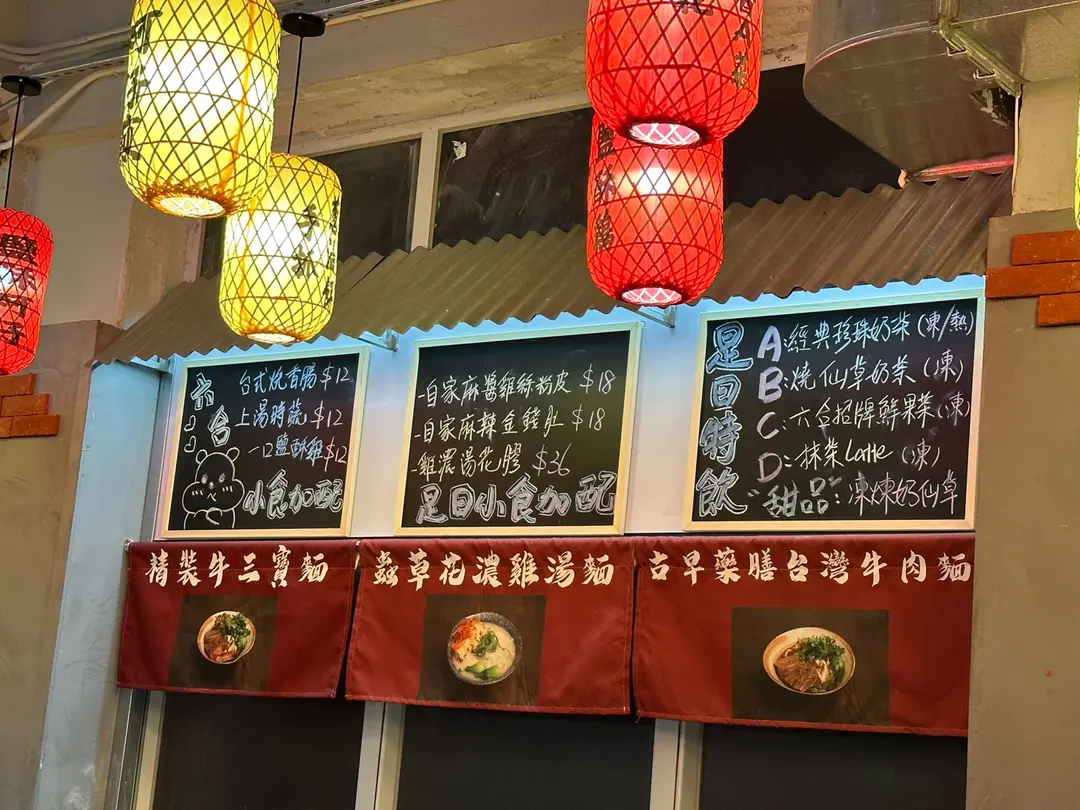 六合
台式燒香腸 $12
上湯時蔬 $12
一口鹽酥雞 $12
小食加配
-自家麻醬雞絲粉皮 $18
-自家麻辣金錢肚 $18
-雞濃湯花膠 $36
是日小食加配
是日時飲
A:經典珍珠奶茶(凍/熱)
B:燒仙草奶茶(凍)
C:六合招牌鮮果茶(凍)
D:抹茶Latte(凍)
"甜品":凍煉奶仙草
精裝牛三寶麵
蟲草花濃雞湯麵
古早藥膳台灣牛肉麵